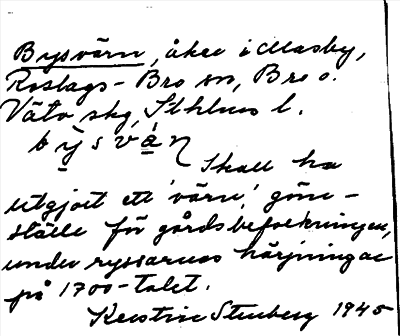 Bysvärn, åker i Masby,
Roslags-Bro sn, Bro o.
Väto skg, Sthlms l.
býsvà̱ṇ
Skall ha
utgjort ett 'värn', göm-
ställe för gårdsbefolkningen,
under ryssarnas härjningar
på 1700-talet.
Kerstin Stenberg 1945